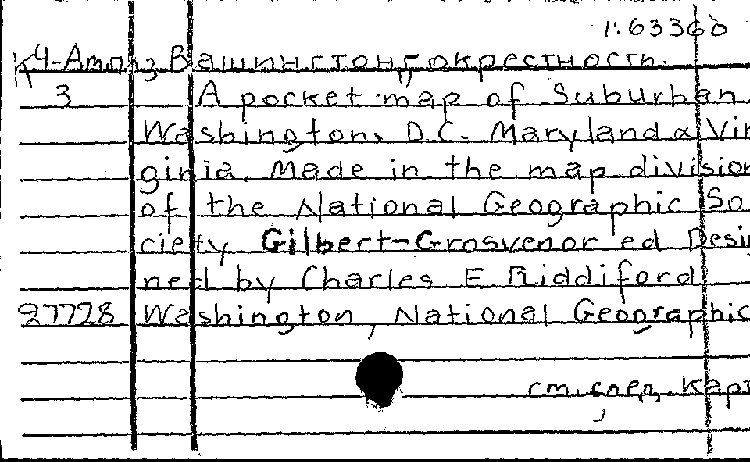 1:63360
К4-Амо 13 Вашингтон, окрестности.
3 A pocket map of Suburban
Washington, D.C. Maryland a Vir
ginia. Made in the map division
of the National Geographic So
ciety Gilbert-Grosvenor ed Desi
ned by Charles E Riddiford
27728 Washington, National Geographic
см. след. карт